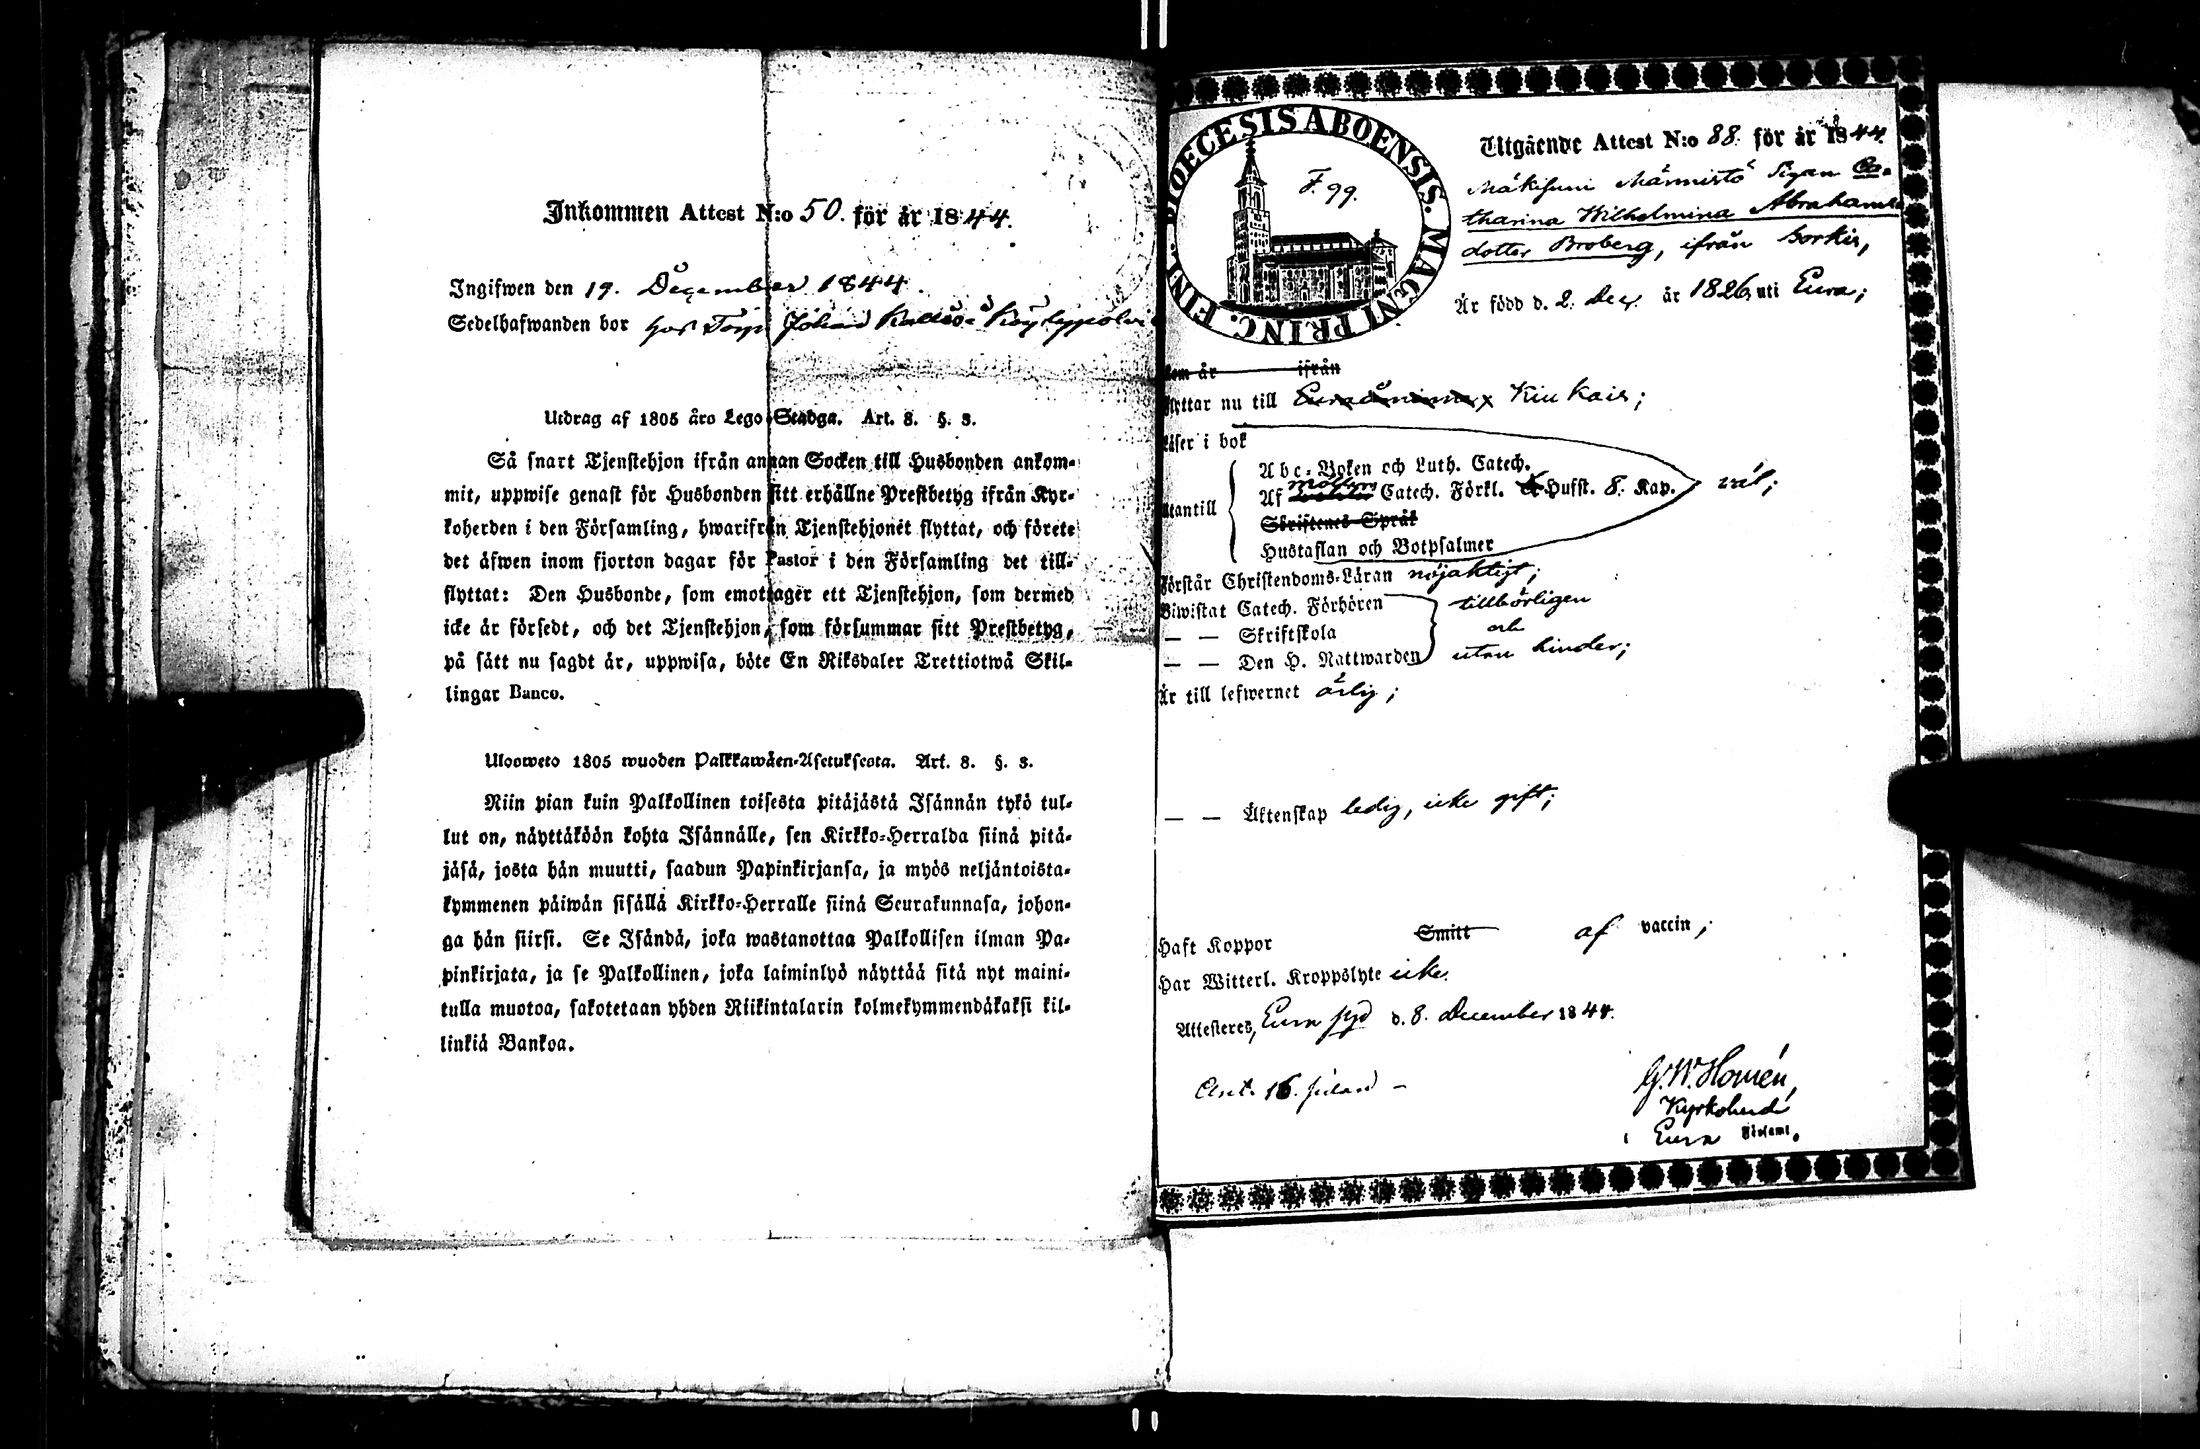 Inkommen Attest N:o 50. för år 1844.
Ingifwen den 19. December 1844.
Sedelhafwanden bor hos Torp. Johan
Utdrag af 1805 års Lego-Stadga. Art. 8. §. 3.
Så snart Tjenstehjon ifrån annan Socken till Husbonden ankom-
mit, uppwise genast för Husbonden sitt erhållne Prestbetyg ifrån Kyr-
koherden i den Församling, hwarifrån Tjenstehjonet flyttat, och förete
det äfwen inom fjorton dagar för Pastor i den Församling det till-
flyttat: Den Husbonde, som emottager ett Tjenstehjon, som dermed
icke är försedt, och det Tjenstehjon, som försummar sitt Prestbetyg,
på sätt nu sagdt är, uppwisa, böte En Riksdaler Trettiotwå Skil-
lingar Banco.
Ulosweto 1805 wuoden Palkkawäen-Asetuksesta. Art. 8. §. 3.
Niin pian kuin Palkollinen toisesta pitäjästä Isännän tykö tul-
lut on, näyttäköön kohta Isännälle, sen Kirkko-Herralda siinä pitä-
jäsä, josta hän muutti, saadun Papinkirjansa, ja myös neljäntoista-
kymmenen päiwän sisällä Kirkko-Herralle siinä Seurakunnasa, johon-
ga hän siirsi. Se Isändä, joka wastanottaa Palkollisen ilman Pa-
pinkirjata, ja se Palkollinen, joka laiminlyö näyttää sitä nyt maini-
tulla muotoa, sakotetaan yhden Riikintalarin kolmekymmendäkaksi kil-
linkiä Bankoa.
DIOECESIS ABOENSIS. MAGNI PRINC. FINL.
F. 99.
Utgående Attest N:o 88. för år 1844.
Mäkisuni Männistö Pigan Ca-
tharina Wilhelmina Abrahams
dotter Broberg, ifrån Sorkis,
Är född d. 2. Dec. år 1826, uti Eura;
som är ifrån
flyttar nu till Euraåminne x Kiukais;
Läser i bok
Abc-Boken och Luth. Catech.
utantill Af Möllers Catech. Förkl. Hufst. 8. Kap. väl;
Skriftenes Språk
Hustaflan och Botpsalmer
Förstår Christendoms-Läran nöjaktigt;
Biwistat Catech. Förhören tillbörligen
— — Skriftskola och
— — Den H. Nattwarden utan hinder;
Är till lefwernet ärlig;
— — Äktenskap ledig, icke gift;
Haft Koppor Smitt af vaccin;
Har Witterl. Kroppslyte icke.
Attesteres, Eura pgd d. 8. December 1844.
G. W. Homén,
Kyrkoherde
i Eura Förs.